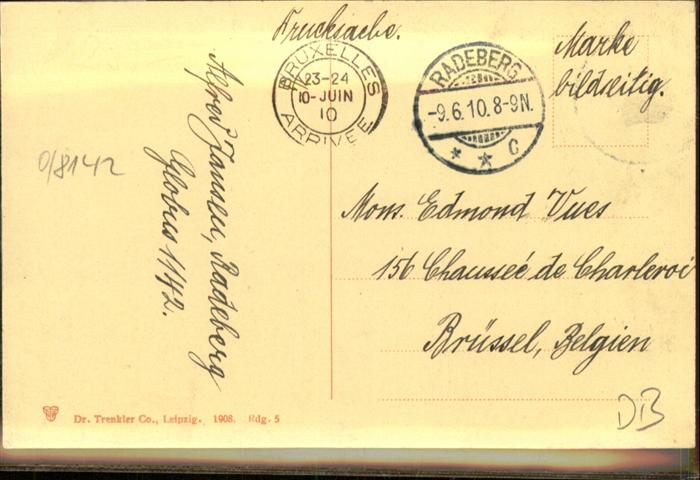 Drucksache.
BRUXELLES
23-24
10-JUIN
10
ARRIVEE
RADEBERG
-9.6.10.8-9N.
* * C
Marke
bildseitig.
Mons. Edmond Vues
156 Chausseé de Charleroi
Brüssel, Belgien
Alfred Jansen, Radeberg
Globus 1142.
0/8142
Dr. Trenkler Co., Leipzig. 1908. Rdg. 5
DB